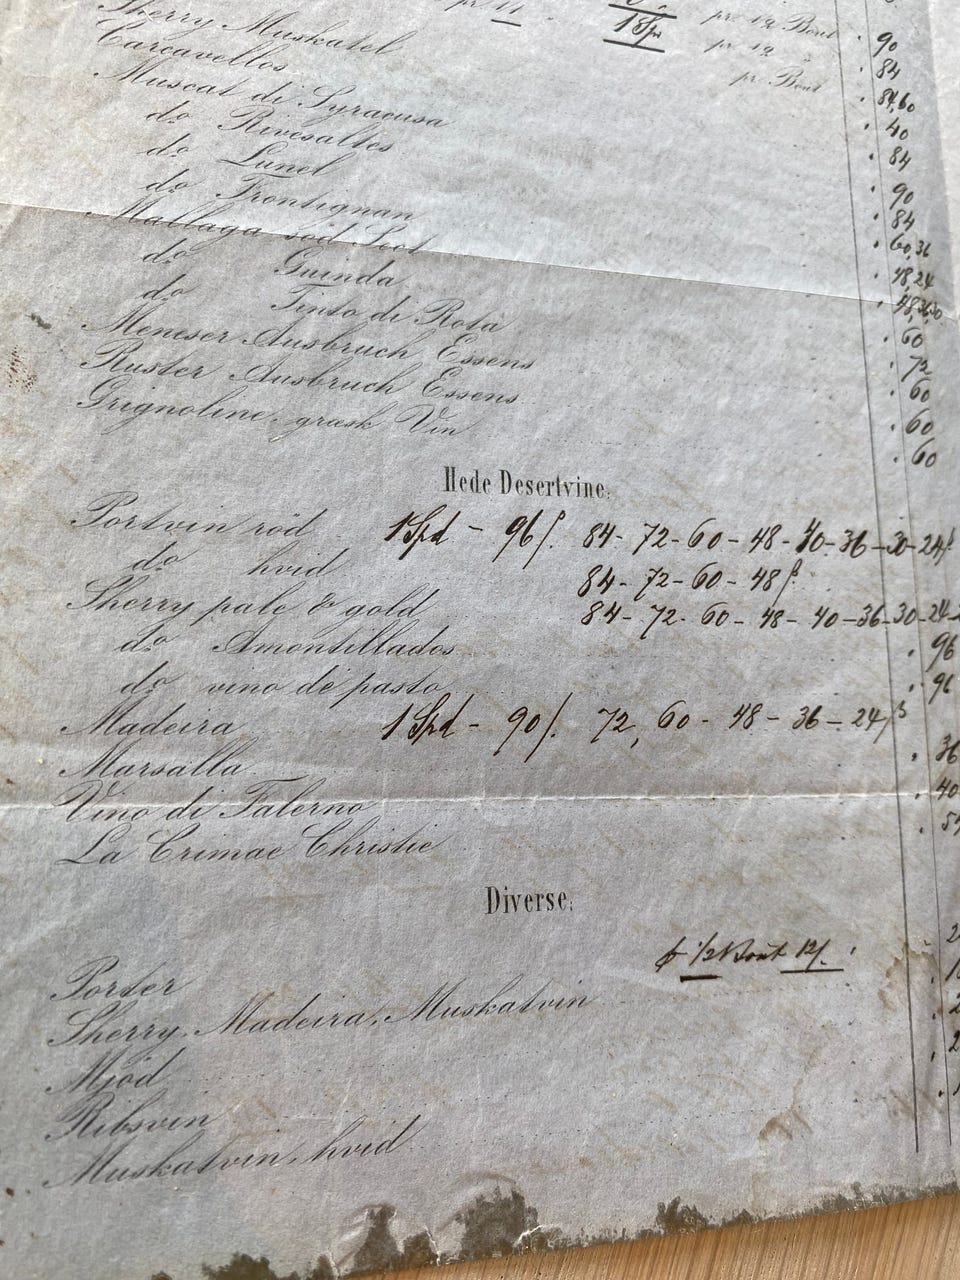 pr 12 Bout
Sherry Muskatel 18 pr 12 90
Carcavellos pr Bout 84
Muscat di Syracusa 84,60
do Rivesaltes 40
do Lunel 84
do Frontignan 90
Mallaga 84
do Guinda 60,36
do Tinto di Rota 48,24
Meneser Ausbruch Essens 60
Ruster Ausbruch Essens 72
Grignoline, græsk Vin 60
60
60
Hede Desertvine.
Portvin röd 1 Spd - 96/. 84- 72- 60 - 48 - 40 - 36 - 30 - 24 ß
do hvid 84 - 72 - 60 - 48 ß.
Sherry pale & gold 84 - 72 - 60 - 48 - 40 - 36 - 30 - 24
do Amontillados 96
do vino de pasto 96
Madeira 1 Spd - 90/. 72, 60 - 48 - 36 - 24 ß
Marsalla 36
Vino di Falerno 40
La Crimae Christie
Diverse.
Porter 1/2 Bout 12/.
Sherry, Madeira, Muskatvin
Mjöd
Ribsvin
Muskatvin, hvid